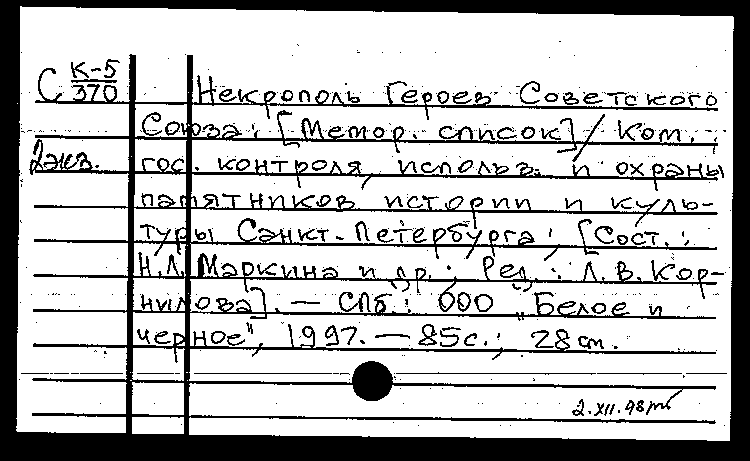 С К-5
370
Некрополь Героев Советского
Союза: [Мемор. список] / Ком.
2экз.
гос. контроля, использ. и охраны
памятников истории и куль-
туры Санкт-Петербурга; [Сост.:
Н.Л. Маркина и др.; Ред.: Л.В. Кор-
нилова]. — СПб.: ООО „Белое и
черное", 1997. — 85с.; 28 см.
2.XII.98